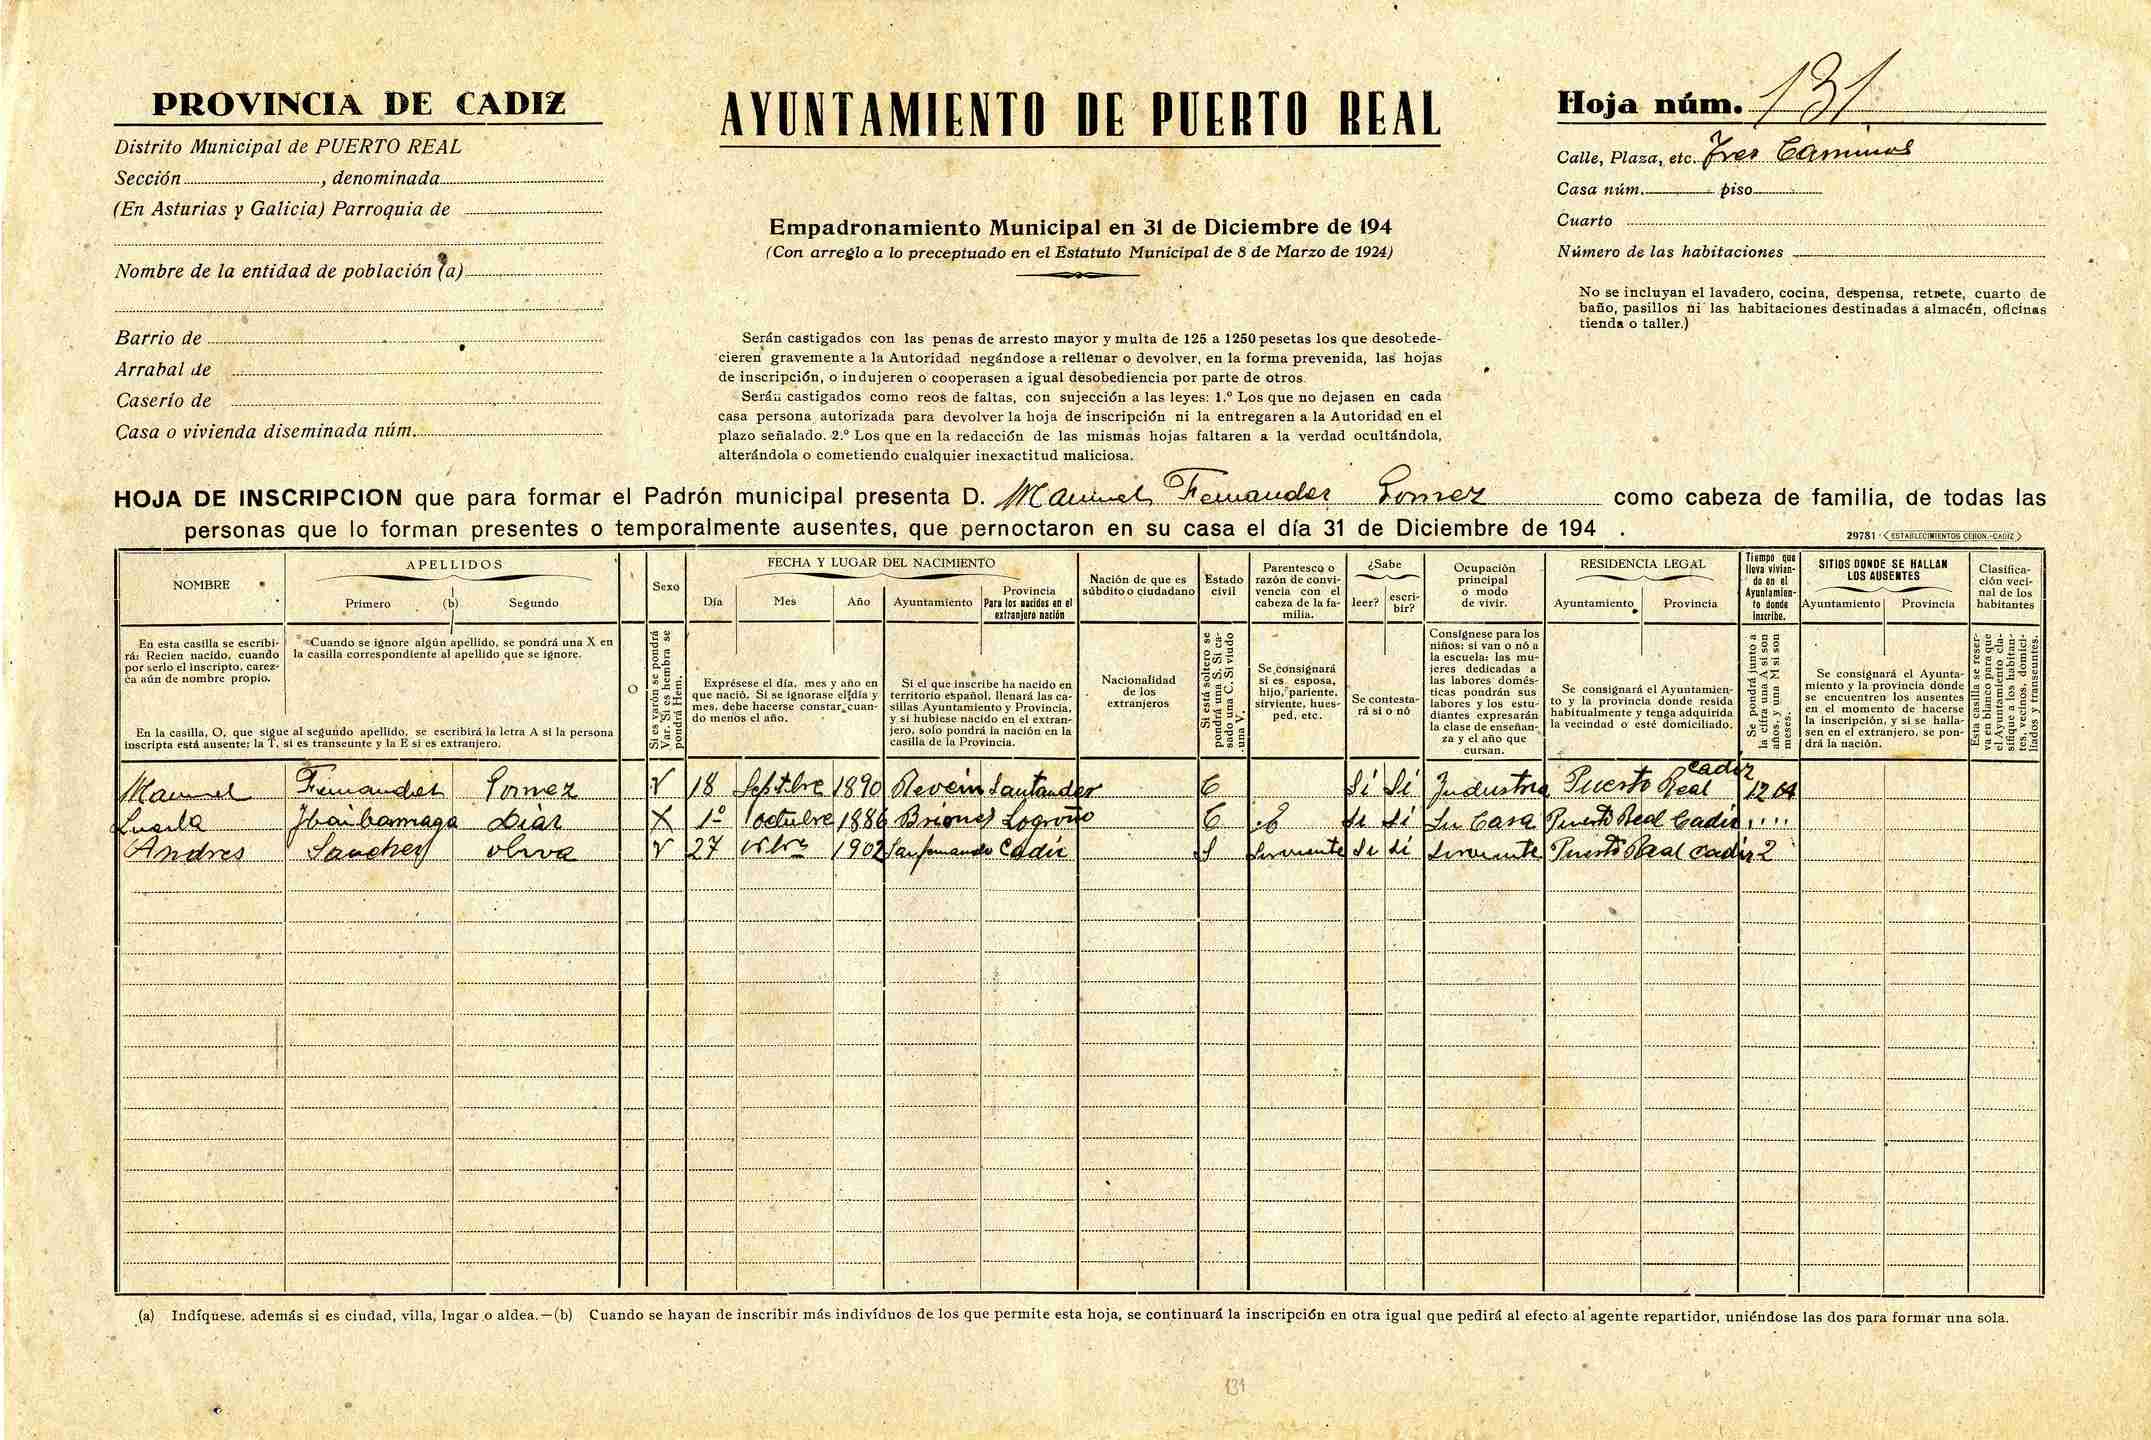 PROVINCIA DE CADIZ
Distrito Municipal de PUERTO REAL
Sección , denominada
(En Asturias y Galicia) Parroquia de
Nombre de la entidad de población (a)
Barrio de
Arrabal de
Caserío de
Casa o vivienda diseminada núm.
AYUNTAMIENTO DE PUERTO REAL
Empadronamiento Municipal en 31 de Diciembre de 194
(Con arreglo a lo preceptuado en el Estatuto Municipal de 8 de Marzo de 1924)
Serán castigados con las penas de arresto mayor y multa de 125 a 1250 pesetas los que desobede-
cieren gravemente a la Autoridad negándose a rellenar o devolver, en la forma prevenida, las hojas
de inscripción, o indujeren o cooperasen a igual desobediencia por parte de otros.
Serán castigados como reos de faltas, con sujección a las leyes: 1.º Los que no dejasen en cada
casa persona autorizada para devolver la hoja de inscripción ni la entregaren a la Autoridad en el
plazo señalado. 2.º Los que en la redacción de las mismas hojas faltaren a la verdad ocultándola,
alterándola o cometiendo cualquier inexactitud maliciosa.
Hoja núm. 131
Calle, Plaza, etc. Tres Caminos
Casa núm. piso
Cuarto
Número de las habitaciones
No se incluyan el lavadero, cocina, despensa, retrete, cuarto de
baño, pasillos ni las habitaciones destinadas a almacén, oficinas
tienda o taller.)
HOJA DE INSCRIPCION que para formar el Padrón municipal presenta D. Manuel Fernandez Gomez como cabeza de familia, de todas las
personas que lo forman presentes o temporalmente ausentes, que pernoctaron en su casa el día 31 de Diciembre de 194 .
29781 - ESTABLECIMIENTOS CERON.-CADIZ
NOMBRE
APELLIDOS
Primero (b) Segundo
O
Sexo
FECHA Y LUGAR DEL NACIMIENTO
Día Mes Año Ayuntamiento
Provincia
Para los nacidos en el
extranjero nación
Nación de que es
súbdito o ciudadano
Estado
civil
Parentesco o
razón de convi-
vencia con el
cabeza de la fa-
milia.
¿Sabe
leer? escri-
bir?
Ocupación
principal
o modo
de vivir.
RESIDENCIA LEGAL
Ayuntamiento Provincia
Tiempo que
lleva vivien-
do en el
Ayuntamien-
to donde
inscribe.
SITIOS DONDE SE HALLAN
LOS AUSENTES
Ayuntamiento Provincia
Clasifica-
ción veci-
nal de los
habitantes
En esta casilla se escribi-
rá: Recien nacido, cuando
por serlo el inscripto, carez-
ca aún de nombre propio.
Cuando se ignore algún apellido, se pondrá una X en
la casilla correspondiente al apellido que se ignore.
En la casilla, O, que sigue al segundo apellido, se escribirá la letra A si la persona
inscripta está ausente; la T, si es transeunte y la E si es extranjero.
Si es varón se pondrá
Var. Si es hembra se
pondrá Hem.
Exprésese el día, mes y año en
que nació. Si se ignorase el día y
mes, debe hacerse constar, cuan-
do menos el año.
Si el que inscribe ha nacido en
territorio español, llenará las ca-
sillas Ayuntamiento y Provincia,
y si hubiese nacido en el extran-
jero, solo pondrá la nación en la
casilla de la Provincia.
Nacionalidad
de los
extranjeros
Si está soltero se
pondrá una S. Si ca-
sado una C. Si viudo
una V.
Se consignará
si es esposa,
hijo, pariente,
sirviente, hues-
ped, etc.
Se contesta-
rá si o nó
Consígnese para los
niños: si van o nó a
la escuela: las mu-
jeres dedicadas a
las labores domés-
ticas pondrán sus
labores y los estu-
diantes expresarán
la clase de enseñan-
za y el año que
cursan.
Se consignará el Ayuntamien-
to y la provincia donde resida
habitualmente y tenga adquirida
la vecindad o esté domiciliado.
Se pondrá junto a
la cifra una A si son
años, y una M si son
meses.
Se consignará el Ayunta-
miento y la provincia donde
se encuentren los ausentes
en el momento de hacerse
la inscripción, y si se halla-
sen en el extranjero, se pon-
drá la nación.
Esta casilla se reser-
va en blanco para que
el Ayuntamiento cla-
sifique a los habitan-
tes, vecinos, domici-
liados y transeuntes.
Manuel Fernandez Gomez V 18 Septbre 1890 Santander C Sí Sí Industria Puerto Real Cadiz
Diaz X 1º octubre 1886 Briones Logroño C E Si Sí Su Casa Puerto Real Cadiz
Andres Sanchez oliva V 27 1902 San fernando Cadiz S Sirviente Si Sí Sirviente Puerto Real Cadiz 2
(a) Indíquese, además si es ciudad, villa, lugar o aldea.—(b) Cuando se hayan de inscribir más indivíduos de los que permite esta hoja, se continuará la inscripción en otra igual que pedirá al efecto al agente repartidor, uniéndose las dos para formar una sola.
131